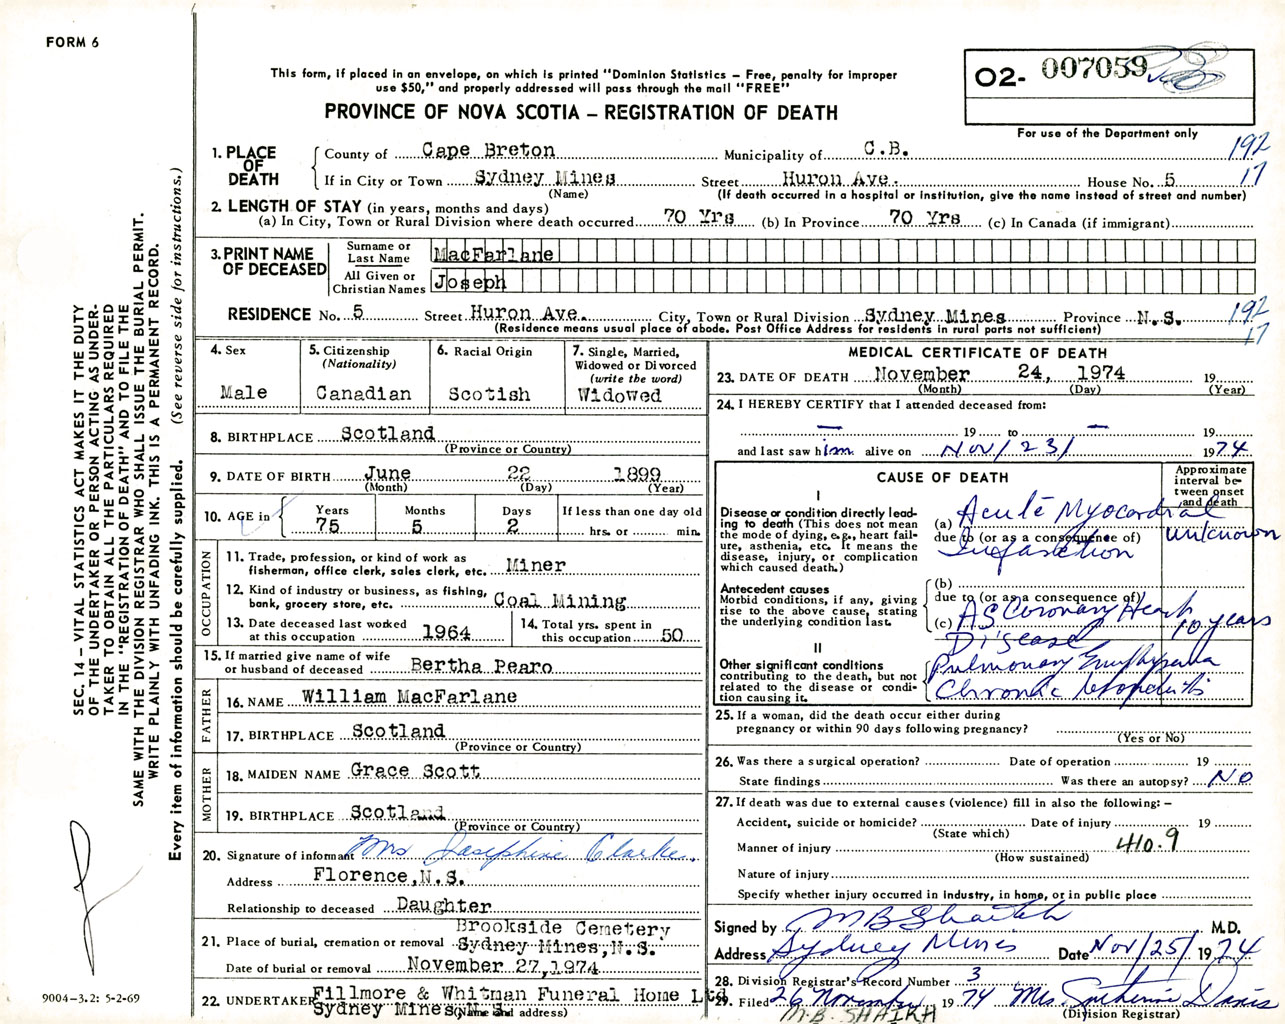 FORM 6
This form, if placed in an envelope, on which is printed "Dominion Statistics – Free, penalty for improper
use $50," and properly addressed will pass through the mail "FREE"
PROVINCE OF NOVA SCOTIA – REGISTRATION OF DEATH
02- 007059
For use of the Department only
1. PLACE OF DEATH
County of Cape Breton Municipality of C.B. 192
If in City or Town Sydney Mines Street Huron Ave. House No. 5 17
(Name) (If death occurred in a hospital or institution, give the name instead of street and number)
2. LENGTH OF STAY (in years, months and days)
(a) In City, Town or Rural Division where death occurred 70 Yrs (b) In Province 70 Yrs (c) In Canada (if immigrant)
3. PRINT NAME OF DECEASED
Surname or Last Name MacFarlane
All Given or Christian Names Joseph
RESIDENCE No. 5 Street Huron Ave. City, Town or Rural Division Sydney Mines Province N.S. 192
(Residence means usual place of abode. Post Office Address for residents in rural parts not sufficient) 17
4. Sex
Male
5. Citizenship
(Nationality)
Canadian
6. Racial Origin
Scotish
7. Single, Married,
Widowed or Divorced
(write the word)
Widowed
8. BIRTHPLACE Scotland
(Province or Country)
9. DATE OF BIRTH June 22 1899
(Month) (Day) (Year)
10. AGE in
Years Months Days If less than one day old
75 5 2 hrs. or min.
OCCUPATION
11. Trade, profession, or kind of work as
fisherman, office clerk, sales clerk, etc. Miner
12. Kind of industry or business, as fishing,
bank, grocery store, etc. Coal Mining
13. Date deceased last worked
at this occupation 1964
14. Total yrs. spent in
this occupation 50
15. If married give name of wife
or husband of deceased Bertha Pearo
FATHER
16. NAME William MacFarlane
17. BIRTHPLACE Scotland
(Province or Country)
MOTHER
18. MAIDEN NAME Grace Scott
19. BIRTHPLACE Scotland
(Province or Country)
20. Signature of informant Mrs Josephine Clarke.
Address Florence, N.S.
Relationship to deceased Daughter
Brookside Cemetery
21. Place of burial, cremation or removal Sydney Mines, N.S.
Date of burial or removal November 27, 1974
22. UNDERTAKER Fillmore & Whitman Funeral Home Ltd
Sydney Mines N.S.
(Name and address)
MEDICAL CERTIFICATE OF DEATH
23. DATE OF DEATH November 24, 1974 19
(Month) (Day) (Year)
24. I HEREBY CERTIFY that I attended deceased from:
— 19 to — 19
and last saw him alive on Nov/23/ 1974
CAUSE OF DEATH
Approximate
interval be-
tween onset
and death
I
Disease or condition directly lead-
ing to death (This does not mean
the mode of dying, e.g., heart fail-
ure, asthenia, etc. It means the
disease, injury, or complication
which caused death.)
(a) Acute Myocardial
due to (or as a consequence of) unknown
Infarction
Antecedent causes
Morbid conditions, if any, giving
rise to the above cause, stating
the underlying condition last.
(b)
due to (or as a consequence of)
(c) AS Coronary Heart 10 years
Disease
II
Other significant conditions
contributing to the death, but not
related to the disease or condi-
tion causing it.
Pulmonary Emphysema
Chronic
25. If a woman, did the death occur either during
pregnancy or within 90 days following pregnancy?
(Yes or No)
26. Was there a surgical operation? Date of operation 19
State findings Was there an autopsy? NO
27. If death was due to external causes (violence) fill in also the following: –
Accident, suicide or homicide? Date of injury 19
(State which)
Manner of injury 410.9
(How sustained)
Nature of injury
Specify whether injury occurred in industry, in home, or in public place
Signed by MB Shaikh M.D.
Address Sydney Mines Date Nov/25/ 1974
28. Division Registrar's Record Number 3
29. Filed 26 November 1974 Mrs. Davis
M.B. SHAIKH (Division Registrar)
SEC. 14 – VITAL STATISTICS ACT MAKES IT THE DUTY
OF THE UNDERTAKER OR PERSON ACTING AS UNDER-
TAKER TO OBTAIN ALL THE PARTICULARS REQUIRED
IN THE "REGISTRATION OF DEATH" AND TO FILE THE
SAME WITH THE DIVISION REGISTRAR WHO SHALL ISSUE THE BURIAL PERMIT.
WRITE PLAINLY WITH UNFADING INK. THIS IS A PERMANENT RECORD.
Every item of information should be carefully supplied. (See reverse side for instructions.)
9004-3.2: 5-2-69